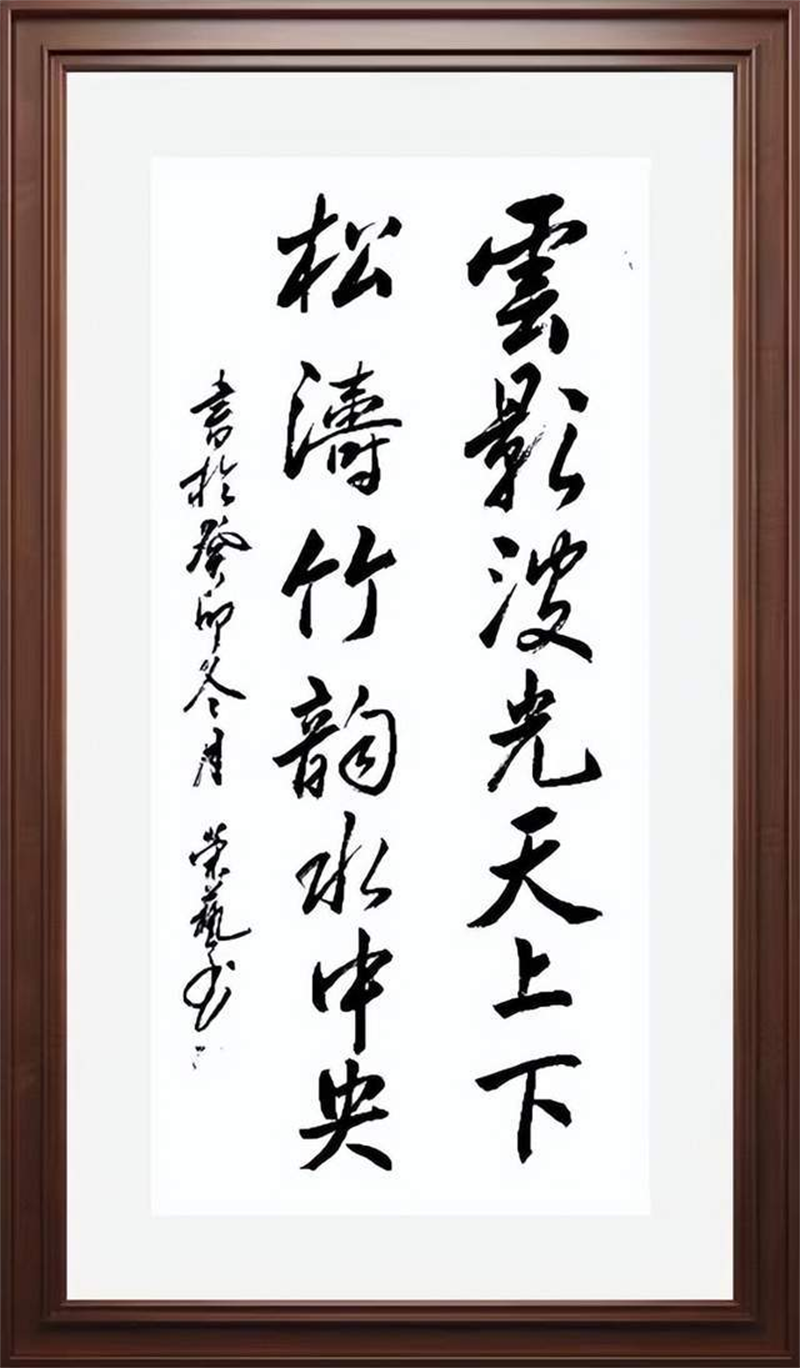 雲影波光天上下
松濤竹韵水中央
書於癸卯冬月 榮藝書